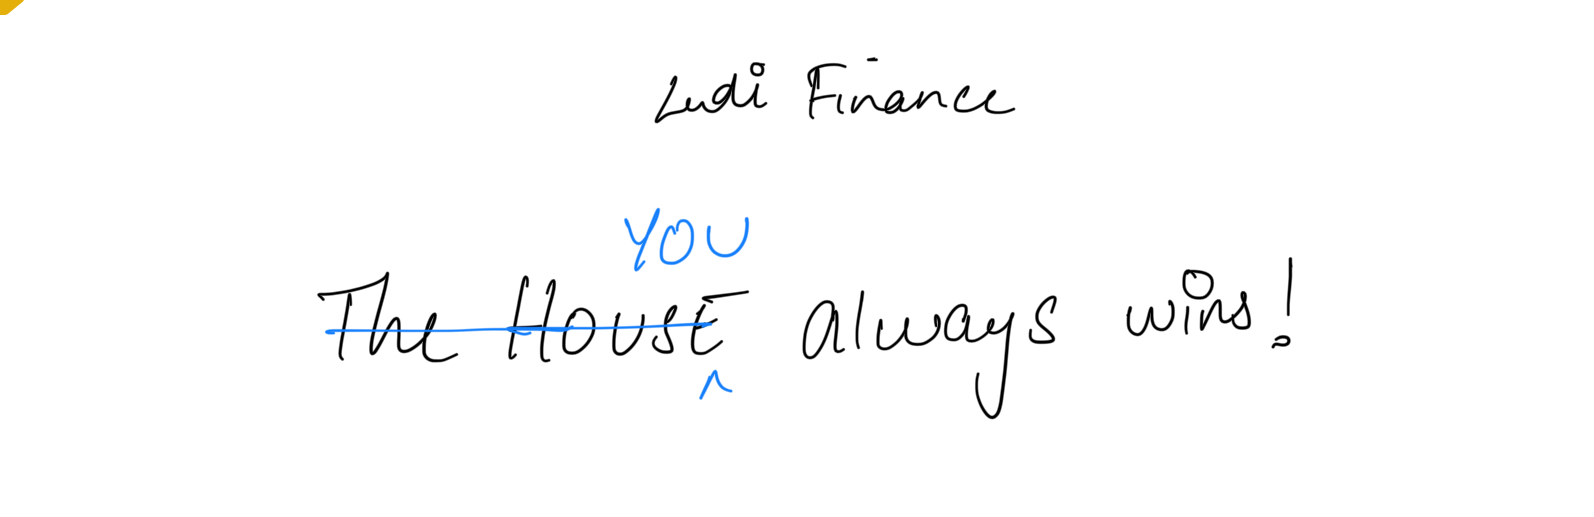 Ludi Finance
YOU
The House always wins!